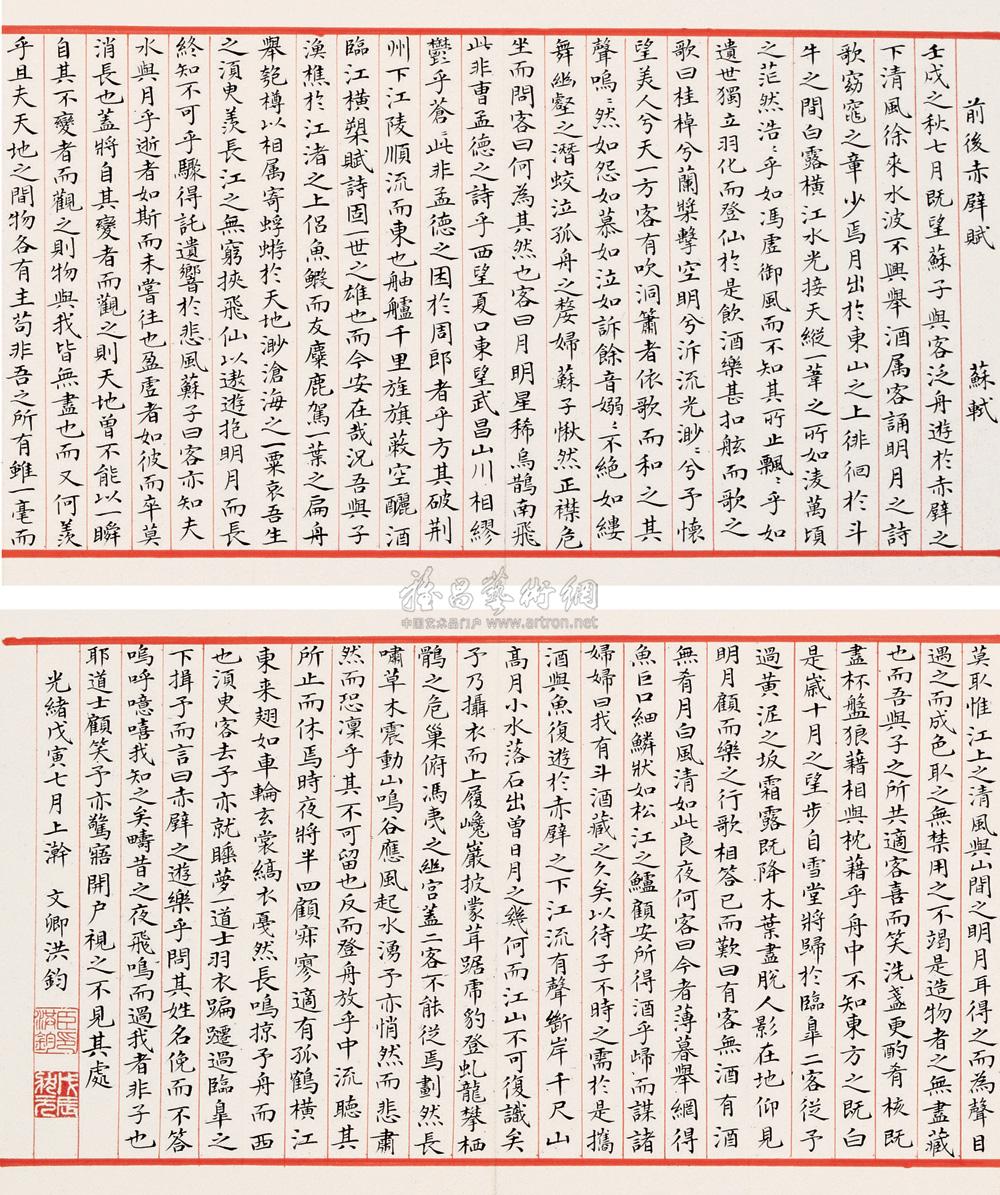 前後赤壁賦 蘇軾
壬戌之秋七月既望蘇子與客泛舟遊於赤壁之
下清風徐來水波不興舉酒属客誦明月之詩
歌窈窕之章少焉月出於東山之上徘徊於斗
牛之間白露橫江水光接天縱一葦之所如淩萬頃
之茫然浩〻乎如馮虛御風而不知其所止飄〻乎如
遺世獨立羽化而登仙於是飲酒樂甚扣舷而歌之
歌曰桂棹兮蘭槳擊空明兮泝流光渺〻兮予懷
望美人兮天一方客有吹洞簫者依歌而和之其
聲嗚〻然如怨如慕如泣如訴餘音嫋〻不絕如縷
舞幽壑之潛蛟泣孤舟之嫠婦蘇子愀然正襟危
坐而問客曰何為其然也客曰月明星稀烏鵲南飛
此非曹孟德之詩乎西望夏口東望武昌山川相繆
鬱乎蒼〻此非孟德之困於周郎者乎方其破荆
州下江陵順流而東也舳艫千里旌旗蔽空釃酒
臨江橫槊賦詩固一世之雄也而今安在哉況吾與子
漁樵於江渚之上侣魚鰕而友麋鹿駕一葉之扁舟
舉匏樽以相属寄蜉蝣於天地渺滄海之一粟哀吾生
之須臾羨長江之無窮挾飛仙以遨遊抱明月而長
終知不可乎驟得託遺響於悲風蘇子曰客亦知夫
水與月乎逝者如斯而未嘗往也盈虛者如彼而卒莫
消長也蓋將自其變者而觀之則天地曾不能以一瞬
自其不變者而觀之則物與我皆無盡也而又何羨
乎且夫天地之間物各有主苟非吾之所有雖一毫而
莫取惟江上之清風與山間之明月耳得之而為聲目
遇之而成色取之無禁用之不竭是造物者之無盡藏
也而吾與子之所共適客喜而笑洗盞更酌肴核既
盡杯盤狼藉相與枕藉乎舟中不知東方之既白
是歲十月之望步自雪堂將歸於臨皐二客從予
過黃泥之坂霜露既降木葉盡脫人影在地仰見
明月顧而樂之行歌相答已而歎曰有客無酒有酒
無肴月白風清如此良夜何客曰今者薄暮舉網得
魚巨口細鱗狀如松江之鱸顧安所得酒乎歸而謀諸
婦婦曰我有斗酒藏之久矣以待子不時之需於是攜
酒與魚復遊於赤壁之下江流有聲斷岸千尺山
高月小水落石出曾日月之幾何而江山不可復識矣
予乃攝衣而上履巉巖披蒙茸踞虎豹登虬龍攀栖
鶻之危巢俯馮夷之幽宮蓋二客不能從焉劃然長
嘯草木震動山鳴谷應風起水湧予亦悄然而悲肅
然而恐凜乎其不可留也反而登舟放乎中流聽其
所止而休焉時夜將半四顧寂寥適有孤鶴橫江
東来翅如車輪玄裳縞衣戞然長鳴掠予舟而西
也須臾客去予亦就睡夢一道士羽衣蹁躚過臨皐之
下揖予而言曰赤壁之遊樂乎問其姓名俛而不答
嗚呼噫嘻我知之矣疇昔之夜飛鳴而過我者非子也
耶道士顧笑予亦驚寤開户視之不見其處
光緒戊寅七月上澣 文卿洪鈞
臣印洪鈞
戊辰狀元
雅昌藝術網
中国艺术品门户 www.artron.net